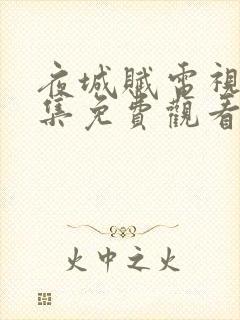 夜城賦電視
集免費觀看
火中之火